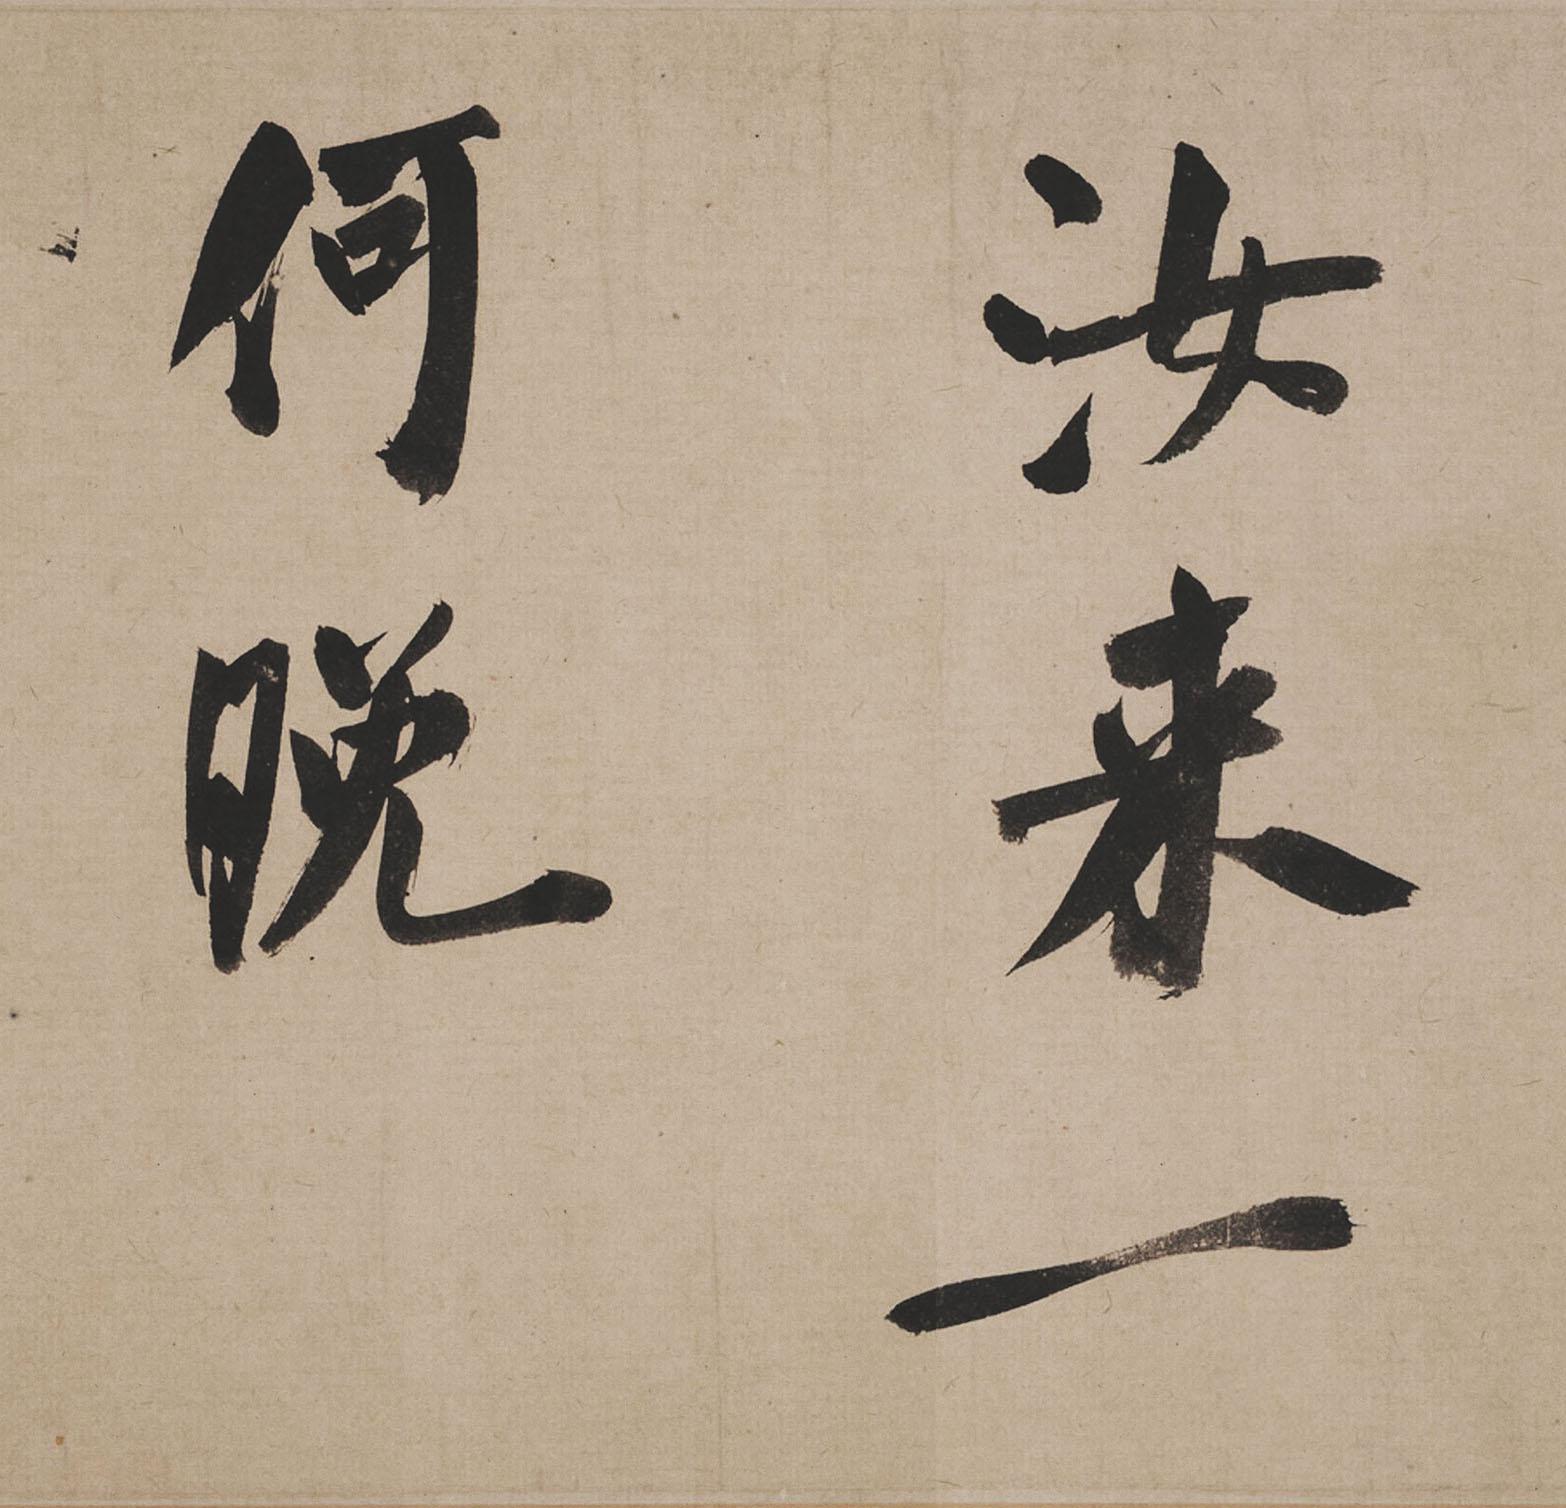 汝来一
何晚